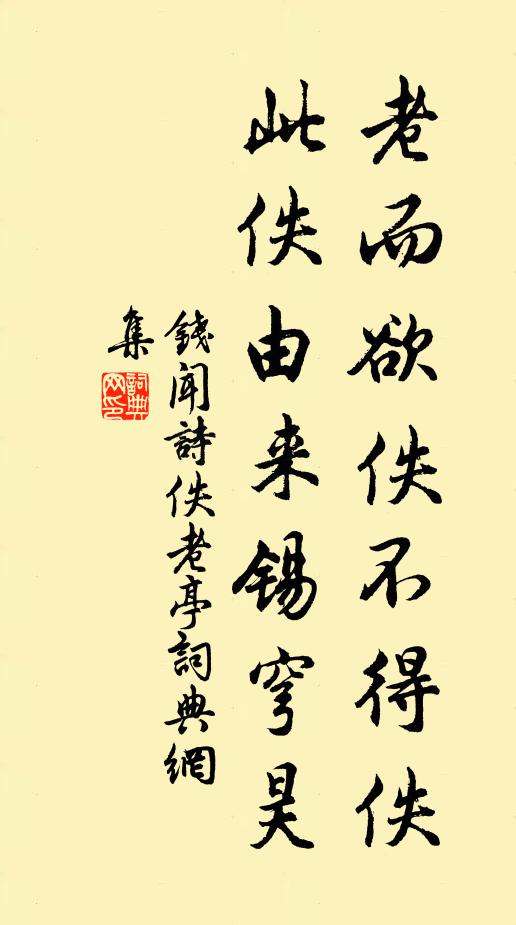 老而欲佚不得佚
此佚由来锡穹昊
錢聞詩佚老亭詞典網
集
詞典
网印